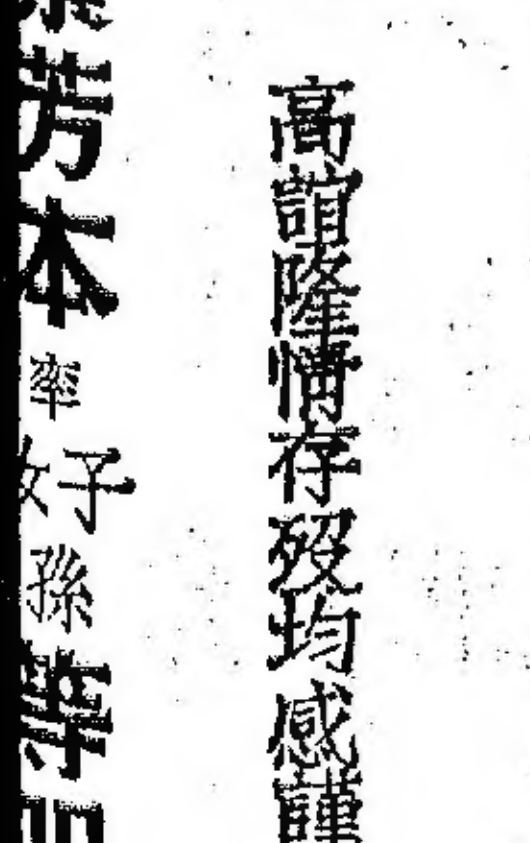 高誼隆情存歿均感謹
芳本率子孫